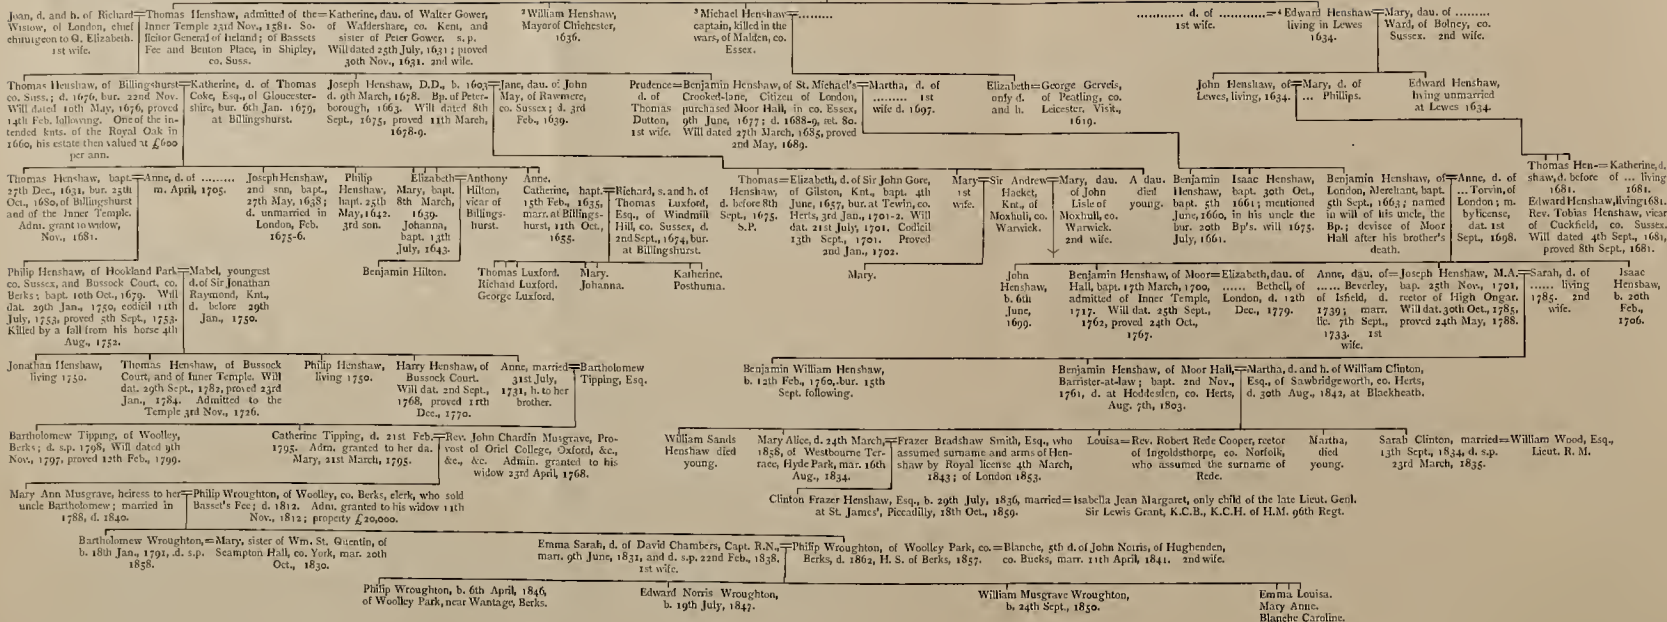 Joan, d. and h. of Richard
Wistow, of London, chief
chirurgeon to Q. Elizabeth.
1st wife.
Thomas Henshaw, admitted of the
Inner Temple 23rd Nov., 1581. So-
licitor General of Ireland; of Bassets
Fee and Benton Place, in Shipley,
co. Suss.
=Katherine, dau. of Walter Gower,
of Waldershare, co. Kent, and
sister of Peter Gower. s. p.
Will dated 25th July, 1631; proved
30th Nov., 1631. 2nd wife.
² William Henshaw,
Mayor of Chichester,
1636.
³ Michael Henshaw=.........
captain, killed in the
wars, of Malden, co.
Essex.
............ d. of ............=
1st wife.
⁴ Edward Henshaw=
living in Lewes
1634.
Mary, dau. of ........
Ward, of Bolney, co.
Sussex. 2nd wife.
Thomas Henshaw, of Billingshurst=
co. Suss.; d. 1676, bur. 22nd Nov.
Will dated 10th May, 1676, proved
14th Feb. following. One of the in-
tended knts. of the Royal Oak in
1660, his estate then valued at £600
per ann.
Katherine, d. of Thomas
Coke, Esq., of Gloucester-
shire, bur. 6th Jan. 1679,
at Billingshurst.
Joseph Henshaw, D.D., b. 1603=
d. 9th March, 1678. Bp. of Peter-
borough, 1663. Will dated 8th
Sept., 1675, proved 11th March,
1678-9.
Jane, dau. of John
May, of Rawmere,
co. Sussex; d. 3rd
Feb., 1639.
Prudence=
d. of
Thomas
Dutton,
1st wife.
Benjamin Henshaw, of St. Michael's=
Crooked-lane, Citizen of London,
purchased Moor Hall, in co. Essex,
9th June, 1677; d. 1688-9, æt. 80.
Will dated 27th March, 1685, proved
2nd May, 1689.
Martha, d. of
........ 1st
wife d. 1697.
Elizabeth=
only d.
and h.
George Gerveis,
of Peatling, co.
Leicester. Visit.,
1619.
John Henshaw, of=
Lewes, living, 1634.
Mary, d. of
... Phillips.
Edward Henshaw,
living unmarried
at Lewes 1634.
Thomas Henshaw, bapt.=
27th Dec., 1631, bur. 25th
Oct., 1680, of Billingshurst
and of the Inner Temple.
Adm. grant to widow,
Nov., 1681.
Anne, d. of ........
m. April, 1705.
Joseph Henshaw,
2nd son, bapt.,
27th May, 1638;
d. unmarried in
London, Feb.
1675-6.
Philip
Henshaw,
bapt. 25th
May, 1642.
3rd son.
Elizabeth=
Mary, bapt.
8th March,
1639.
Johanna,
bapt. 13th
July, 1643.
Anthony
Hilton,
vicar of
Billings-
hurst.
Anne.
Catherine, bapt.=
15th Feb., 1635,
marr. at Billings-
hurst, 11th Oct.,
1655.
Richard, s. and h. of
Thomas Luxford,
Esq., of Windmill
Hill, co. Sussex, d.
2nd Sept., 1674, bur.
at Billingshurst.
Thomas=
Henshaw,
d. before 8th
Sept., 1675.
S.P.
Elizabeth, d. of Sir John Gore,
of Gilston, Knt., bapt. 4th
June, 1657, bur. at Tewin, co.
Herts, 3rd Jan., 1701-2. Will
dat. 21st July, 1701. Codicil
13th Sept., 1701. Proved
2nd Jan., 1702.
Mary=
1st
wife.
Sir Andrew=
Hacket,
Knt., of
Moxhull, co.
Warwick.
Mary, dau.
of John
Lisle of
Moxhull, co.
Warwick.
2nd wife.
A dau.
died
young.
Benjamin
Henshaw,
bapt. 5th
June, 1660,
bur. 20th
July, 1661.
Isaac Henshaw,
bapt. 30th Oct.,
1661; mentioned
in his uncle the
Bp's. will 1675.
Benjamin Henshaw, of=
London, Merchant, bapt.
5th Sept., 1663; named
in will of his uncle, the
Bp.; devisee of Moor
Hall after his brother's
death.
Anne, d. of
... Torvin, of
London; m.
by license,
dat. 1st
Sept., 1698.
Thomas Hen-=
shaw, d. before
1681.
Katherine, d.
of ... living
1681.
Edward Henshaw, living 1681.
Rev. Tobias Henshaw, vicar
of Cuckfield, co. Sussex.
Will dated 4th Sept., 1681,
proved 8th Sept., 1681.
Philip Henshaw, of Hookland Park=
co. Sussex, and Bussock Court, co.
Berks; bapt. 10th Oct., 1679. Will
dat. 29th Jan., 1750, codicil 11th
July, 1753, proved 5th Sept., 1753.
Killed by a fall from his horse 4th
Aug., 1752.
Mabel, youngest
d. of Sir Jonathan
Raymond, Knt.,
d. before 29th
Jan., 1750.
Benjamin Hilton.
Thomas Luxford.
Richard Luxford.
George Luxford.
Mary.
Johanna.
Katherine.
Posthuma.
Mary.
John
Henshaw,
b. 6th
June,
1699.
Benjamin Henshaw, of Moor=
Hall, bapt. 17th March, 1700,
admitted of Inner Temple,
1717. Will dat. 25th Sept.,
1762, proved 24th Oct.,
1767.
Elizabeth, dau. of
...... Bethell, of
London, d. 12th
Dec., 1779.
Anne, dau. of=
...... Beverley,
of Isfield, d.
1739; marr.
lic. 7th Sept.,
1733. 1st
wife.
Joseph Henshaw, M.A.=
bap. 25th Nov., 1701,
rector of High Ongar.
Will dat. 30th Oct., 1785,
proved 24th May, 1788.
Sarah, d. of
...... living
1785. 2nd
wife.
Isaac
Henshaw,
b. 20th
Feb.,
1706.
Jonathan Henshaw,
living 1750.
Thomas Henshaw, of Bussock
Court, and of Inner Temple. Will
dat. 29th Sept., 1782, proved 23rd
Jan., 1784. Admitted to the
Temple 3rd Nov., 1726.
Philip Henshaw,
living 1750.
Harry Henshaw, of
Bussock Court.
Will dat. 2nd Sept.,
1768, proved 11th
Dec., 1770.
Anne, married=
31st July,
1731, h. to her
brother.
Bartholomew
Tipping, Esq.
Benjamin William Henshaw,
b. 12th Feb., 1760, bur. 15th
Sept. following.
Benjamin Henshaw, of Moor Hall,=
Barrister-at-law; bapt. 2nd Nov.,
1761, d. at Hoddesden, co. Herts,
Aug. 7th, 1803.
Martha, d. and h. of William Clinton,
Esq., of Sawbridgeworth, co. Herts,
d. 30th Aug., 1842, at Blackheath.
Bartholomew Tipping, of Woolley,
Berks; d. s.p. 1798, Will dated 9th
Nov., 1797, proved 12th Feb., 1799.
Catherine Tipping, d. 21st Feb.=
1795. Adm. granted to her da.
Mary, 21st March, 1795.
Rev. John Chardin Musgrave, Pro-
vost of Oriel College, Oxford, &c.,
&c., &c. Admin. granted to his
widow 23rd April, 1768.
William Sands
Henshaw died
young.
Mary Alice, d. 24th March,=
1858, of Westbourne Ter-
race, Hyde Park, mar. 16th
Aug., 1834.
Frazer Bradshaw Smith, Esq., who
assumed surname and arms of Hen-
shaw by Royal license 4th March,
1843; of London 1853.
Louisa=
Rev. Robert Rede Cooper, rector
of Ingoldsthorpe, co. Norfolk,
who assumed the surname of
Rede.
Martha,
died
young.
Sarah Clinton, married=
13th Sept., 1834, d. s.p.
23rd March, 1835.
William Wood, Esq.,
Lieut. R. M.
Mary Ann Musgrave, heiress to her=
uncle Bartholomew; married in
1788, d. 1840.
Philip Wroughton, of Woolley, co. Berks, clerk, who sold
Basset's Fee; d. 1812. Adm. granted to his widow 11th
Nov., 1812; property £20,000.
Clinton Frazer Henshaw, Esq., b. 29th July, 1836, married=
at St. James', Piccadilly, 18th Oct., 1859.
Isabella Jean Margaret, only child of the late Lieut. Genl.
Sir Lewis Grant, K.C.B., K.C.H. of H.M. 96th Regt.
Bartholomew Wroughton,=
b. 18th Jan., 1791, d. s.p.
1858.
Mary, sister of Wm. St. Quentin, of
Scampton Hall, co. York, mar. 20th
Oct., 1830.
Emma Sarah, d. of David Chambers, Capt. R.N.,=
marr. 9th June, 1831, and d. s.p. 22nd Feb., 1838.
1st wife.
Philip Wroughton, of Woolley Park, co.=
Berks, d. 1862, H. S. of Berks, 1857.
Blanche, 5th d. of John Norris, of Hughenden,
co. Bucks, marr. 11th April, 1841. 2nd wife.
Philip Wroughton, b. 6th April, 1846,
of Woolley Park, near Wantage, Berks.
Edward Norris Wroughton,
b. 19th July, 1847.
William Musgrave Wroughton,
b. 24th Sept., 1850.
Emma Louisa.
Mary Anne.
Blanche Caroline.